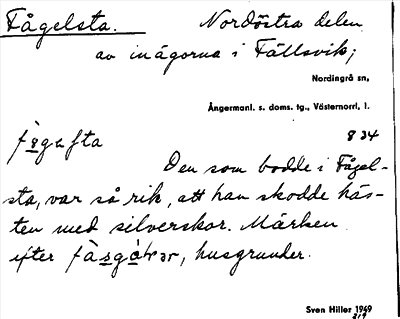 Fågelsta. Nordöstra delen
av inägorna i Fällsvik;
Nordingrå sn,
Ångermanl. s. doms. tg., Västernorrl. l.
834
Den som bodde i Fågel-
sta, var så rik, att han skodde häs-
ten med silverskor. Märken
efter husgrunder.
Sven Hiller 1949